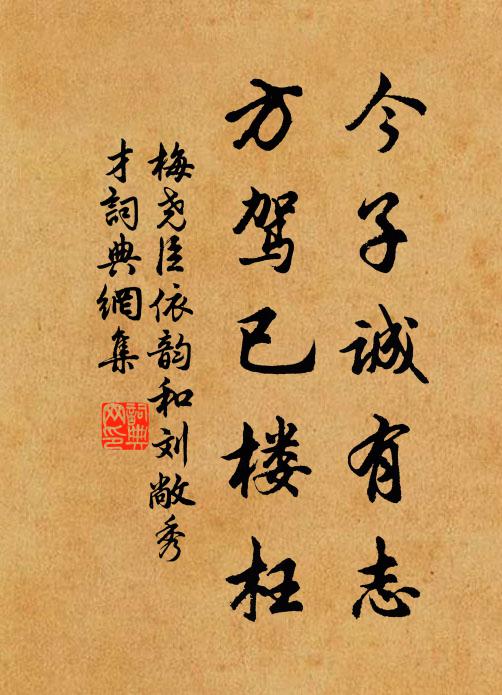 今子诚有志
方驾已楼枉
梅尧臣依韵和刘敞秀
才詞典網集
詞典
网印